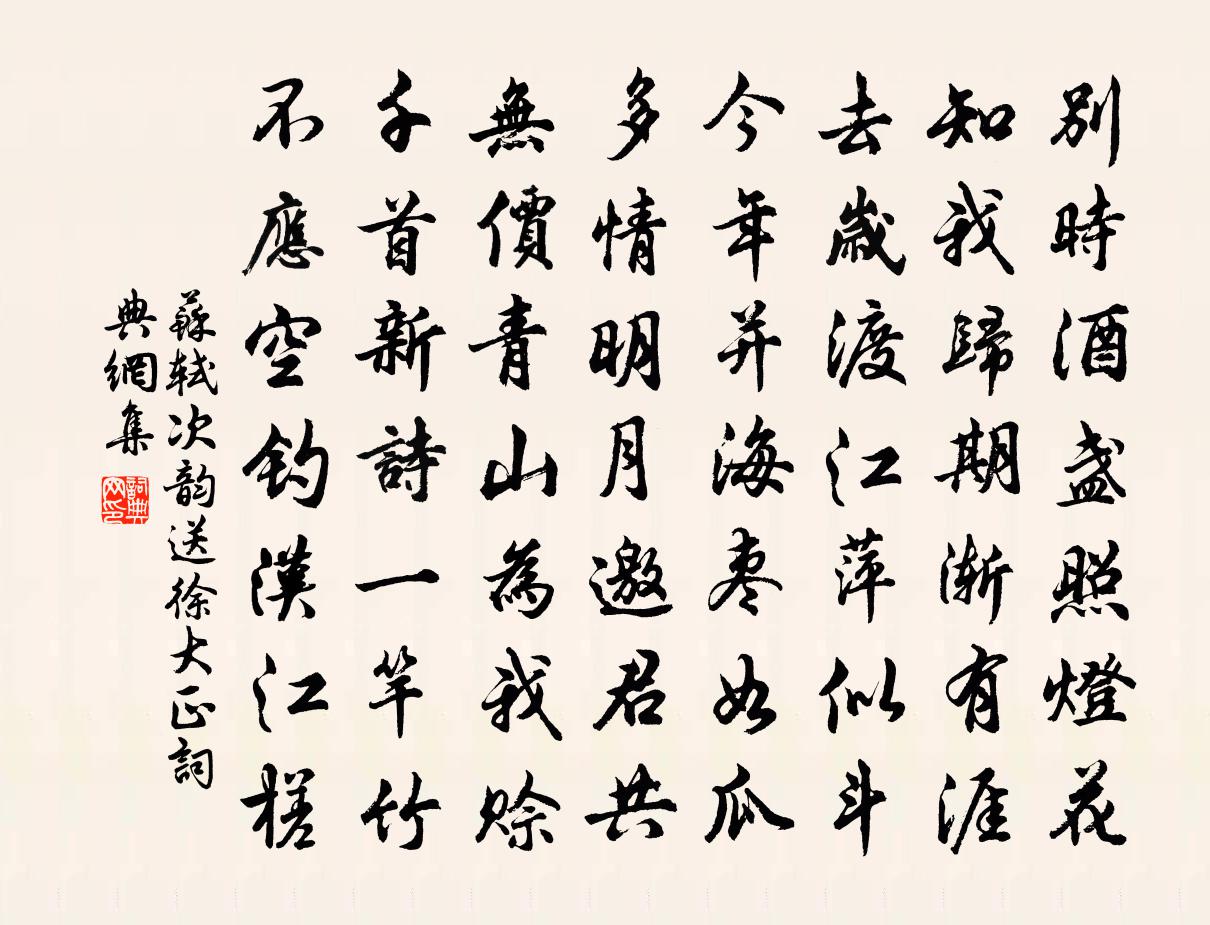 別時酒盞照燈花
知我歸期漸有涯
去歲渡江萍似斗
今年并海棗如瓜
多情明月邀君共
無價青山為我賒
千首新詩一竿竹
不應空釣漢江槎
蘇軾次韵送徐大正詞
典網集
詞典
网印